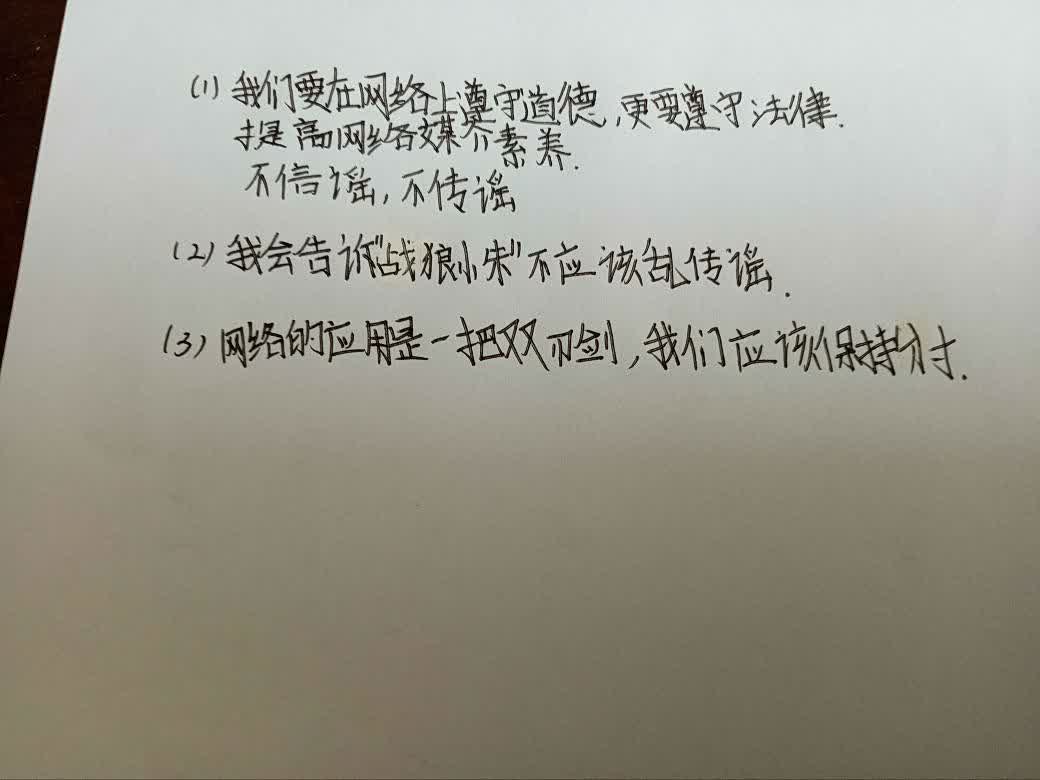 (1) 我们要在网络上遵守道德,更要遵守法律.
提高网络媒介素养.
不信谣,不传谣
(2) 我会告诉"战狼小朱"不应该乱传谣.
(3) 网络的应用是一把双刃剑,我们应该保持分寸.